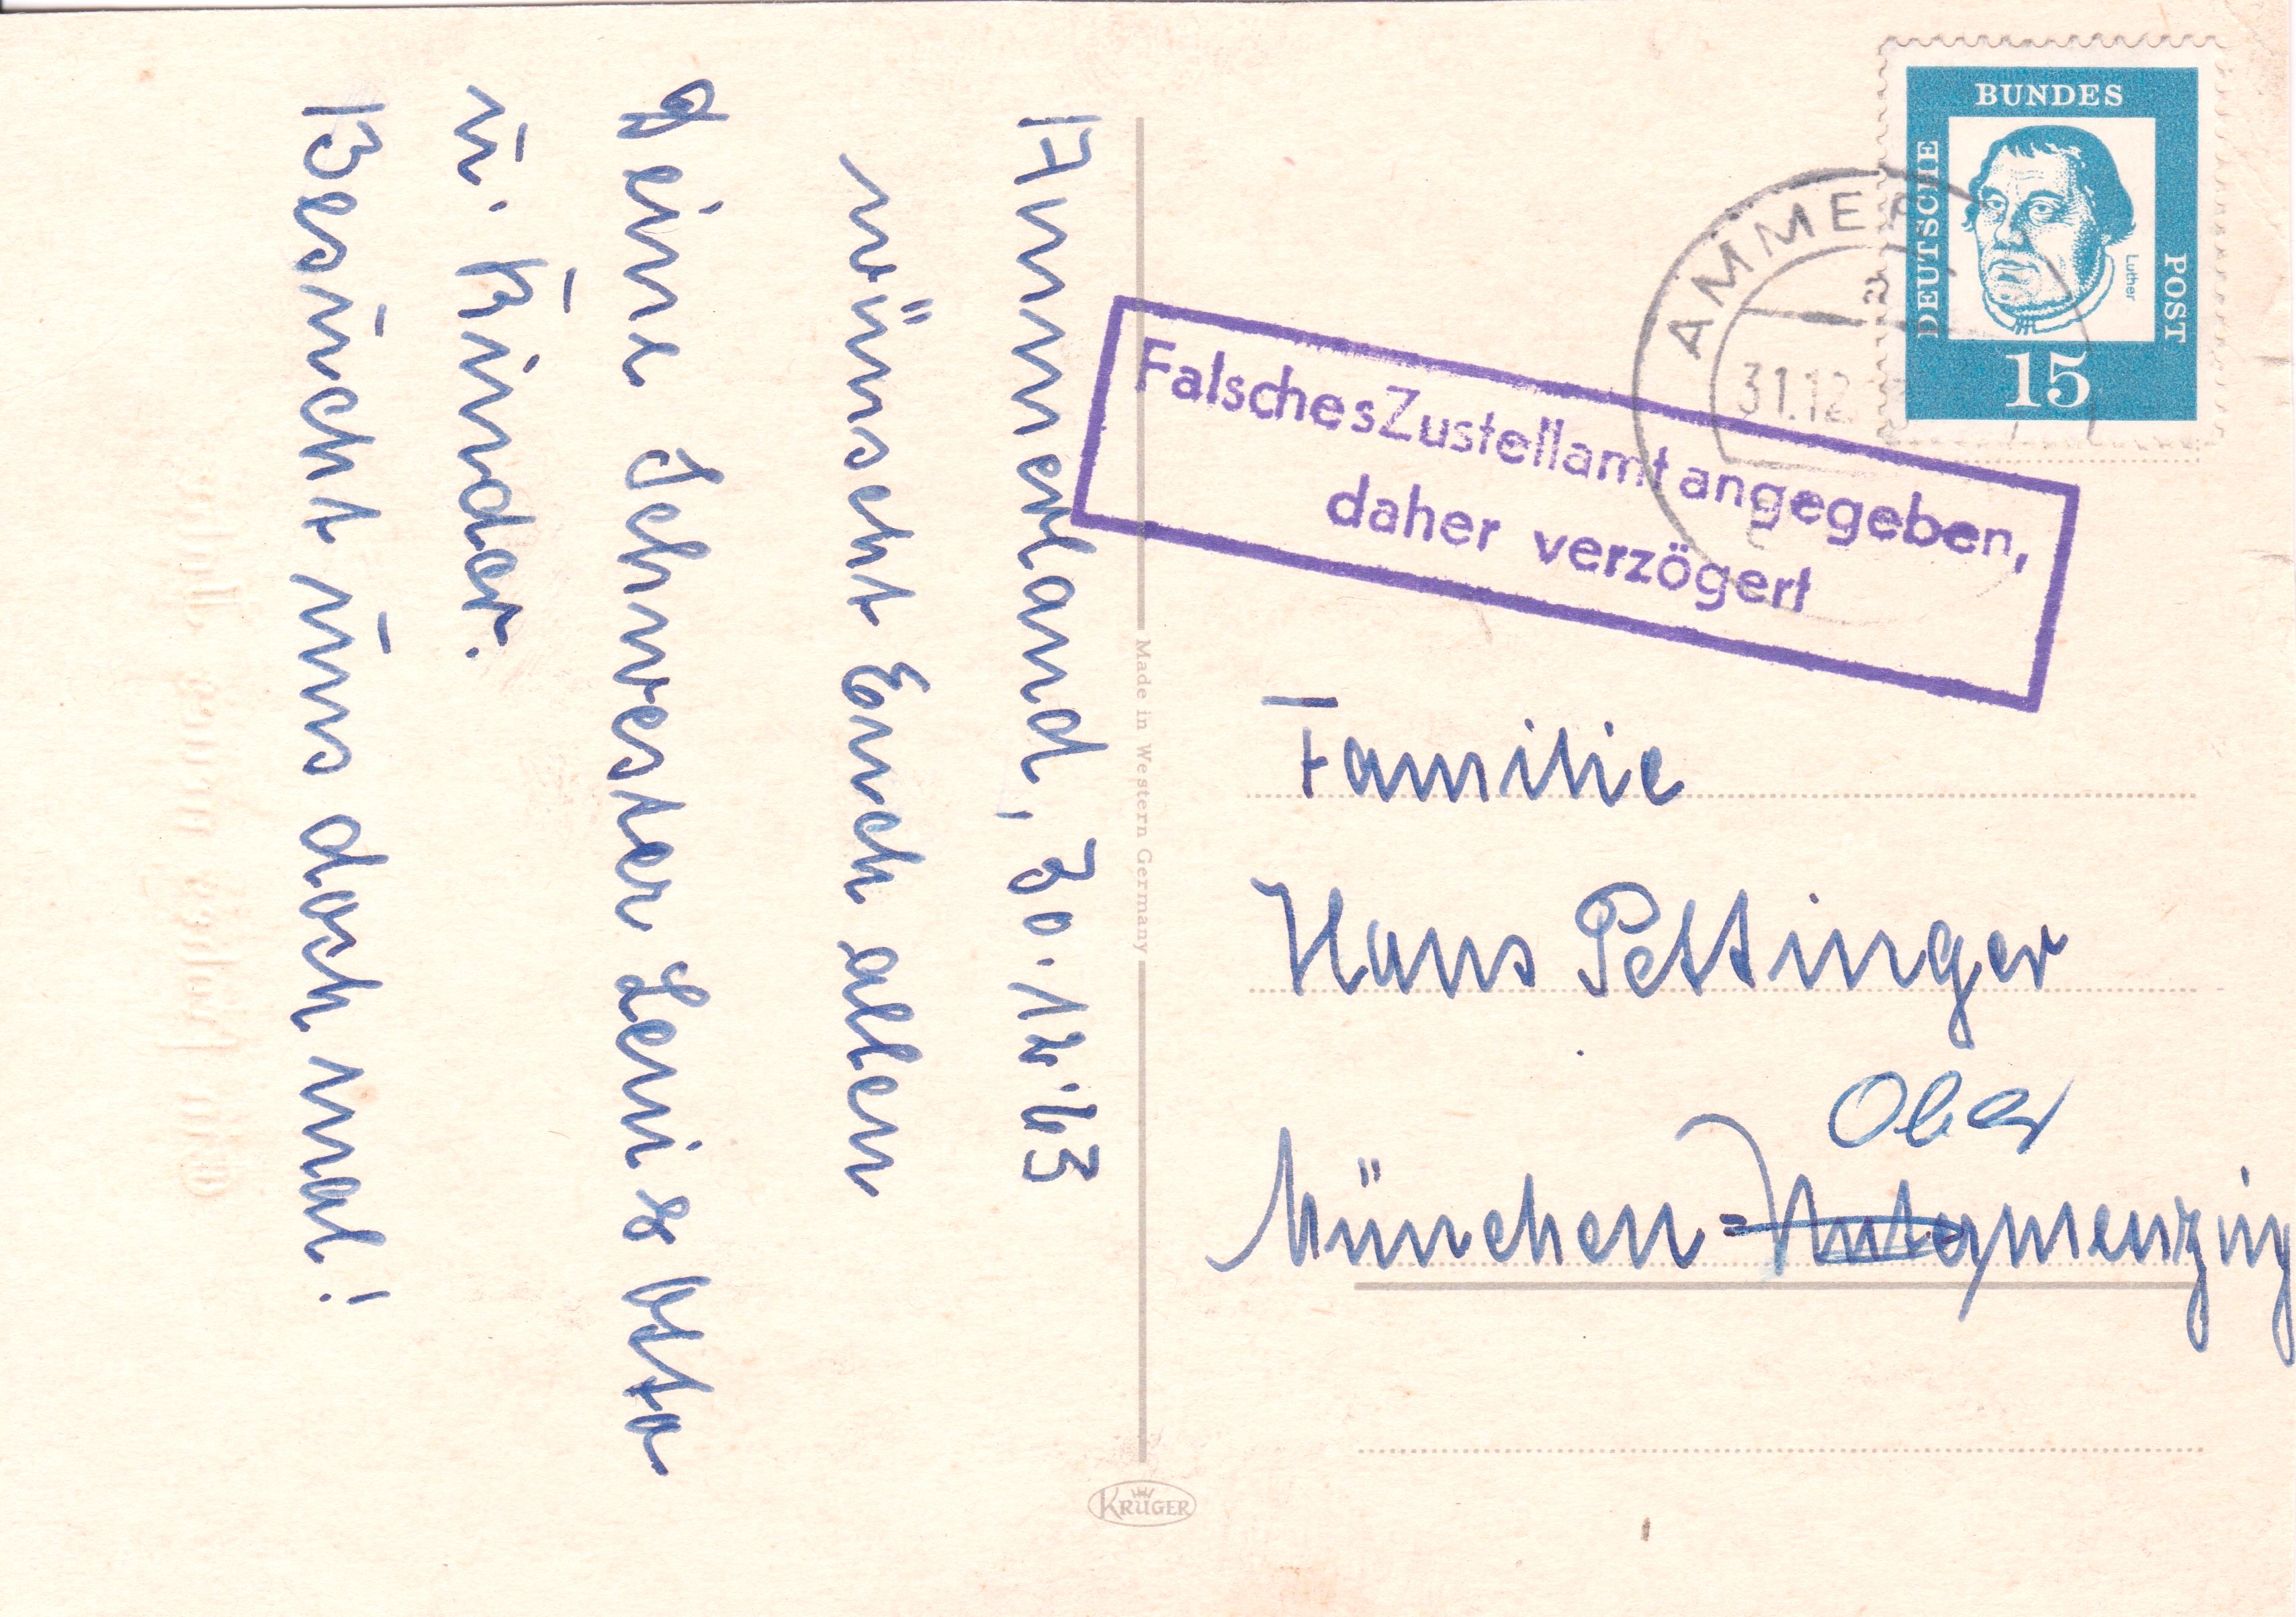 Ammerland, 30.12.63
wünscht Euch allen
Deine Schwester Leni & Otto
u. Kinder.
Besucht uns doch mal!
Made in Western Germany
KRÜGER
DEUTSCHE
BUNDES
POST
Luther
15
AMMER
a
31.12.
Falsches Zustellamt angegeben,
daher verzögert
Familie
Hans Pettinger
Ober
München=Untermenzing